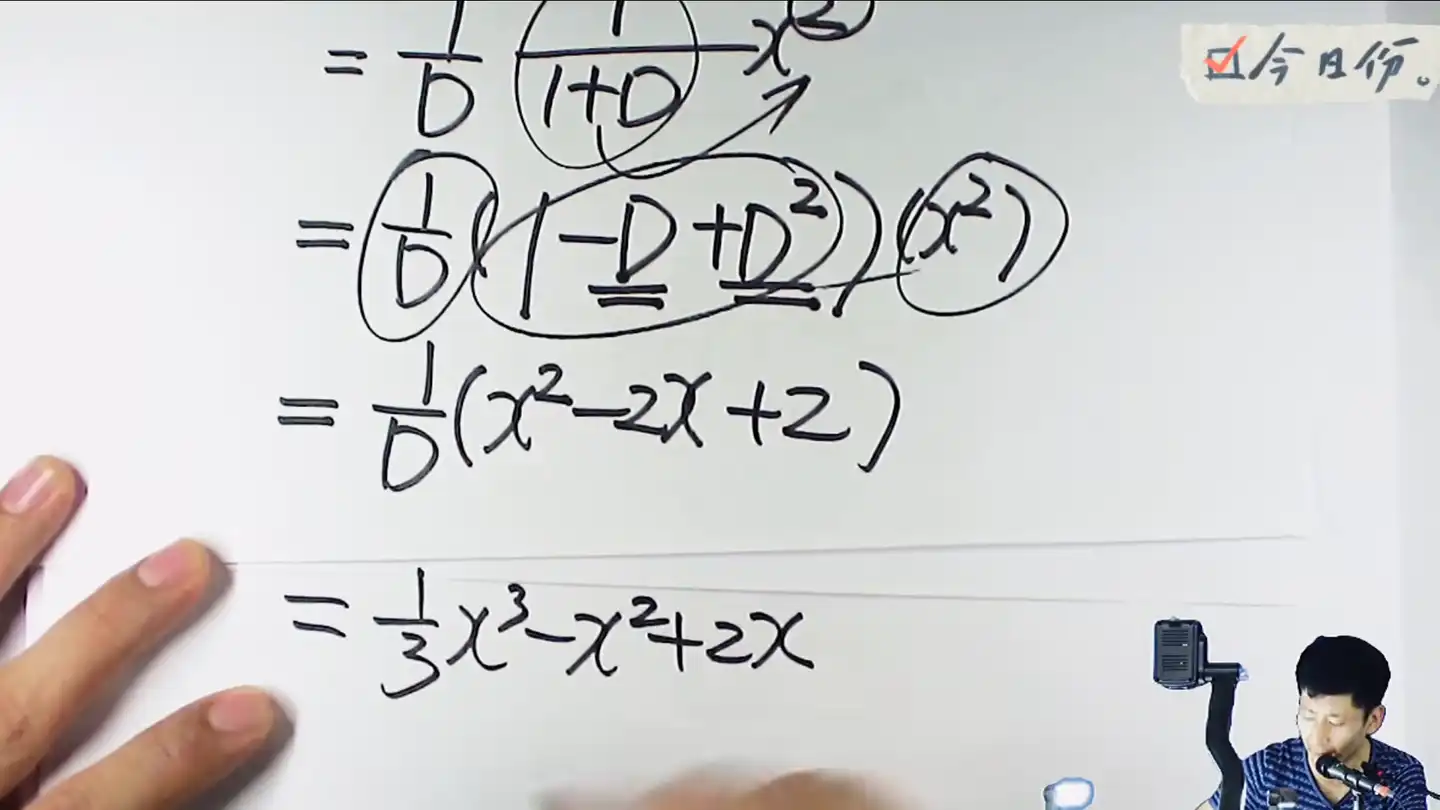 = 1/D 1/(1+D) x²
今日份。
= 1/D (1-D+D²)(x²)
= 1/D (x²-2x+2)
= 1/3 x³-x²+2x